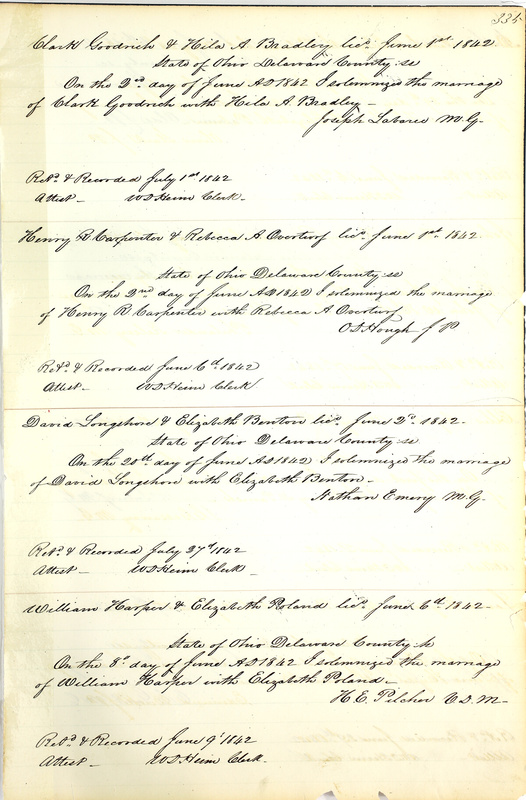 335
Clark Goodrich & Hila A Bradley lic. June 1st 1842
State of Ohio Delaware County ss
On the 2nd day of June AD 1842 I solemnized the marriage
of Clark Goodrich with Hila A. Bradley –
Joseph M.G.
Retd. & Recorded July 1st 1842
Attest – W D Heim Clerk –
Henry R Carpenter & Rebecca A Overturf lic. June 1st 1842
State of Ohio Delaware County ss
On the 2nd day of June AD 1842 I solemnized the marriage
of Henry R Carpenter with Rebecca A Overturf
O D Hough J P
Retd. & Recorded June 6th 1842
Attest – W D Heim Clerk
David Longshore & Elizabeth Benton lic. June 2d 1842 –
State of Ohio Delaware County ss
On the 20th day of June AD 1842 I solemnized the marriage
of David Longshore with Elizabeth Benton –
Nathan Emery M.G.
Retd. & Recorded July 27th 1842
Attest – W D Heim Clerk –
William Harper & Elizabeth Poland lic. June 6th 1842 –
State of Ohio Delaware County ss
On the 8th day of June AD 1842 I solemnized the marriage
of William Harper with Elizabeth Poland –
H. E. Pilcher E. D. M –
Retd. & Recorded June 9th 1842
Attest – W D Heim Clerk –